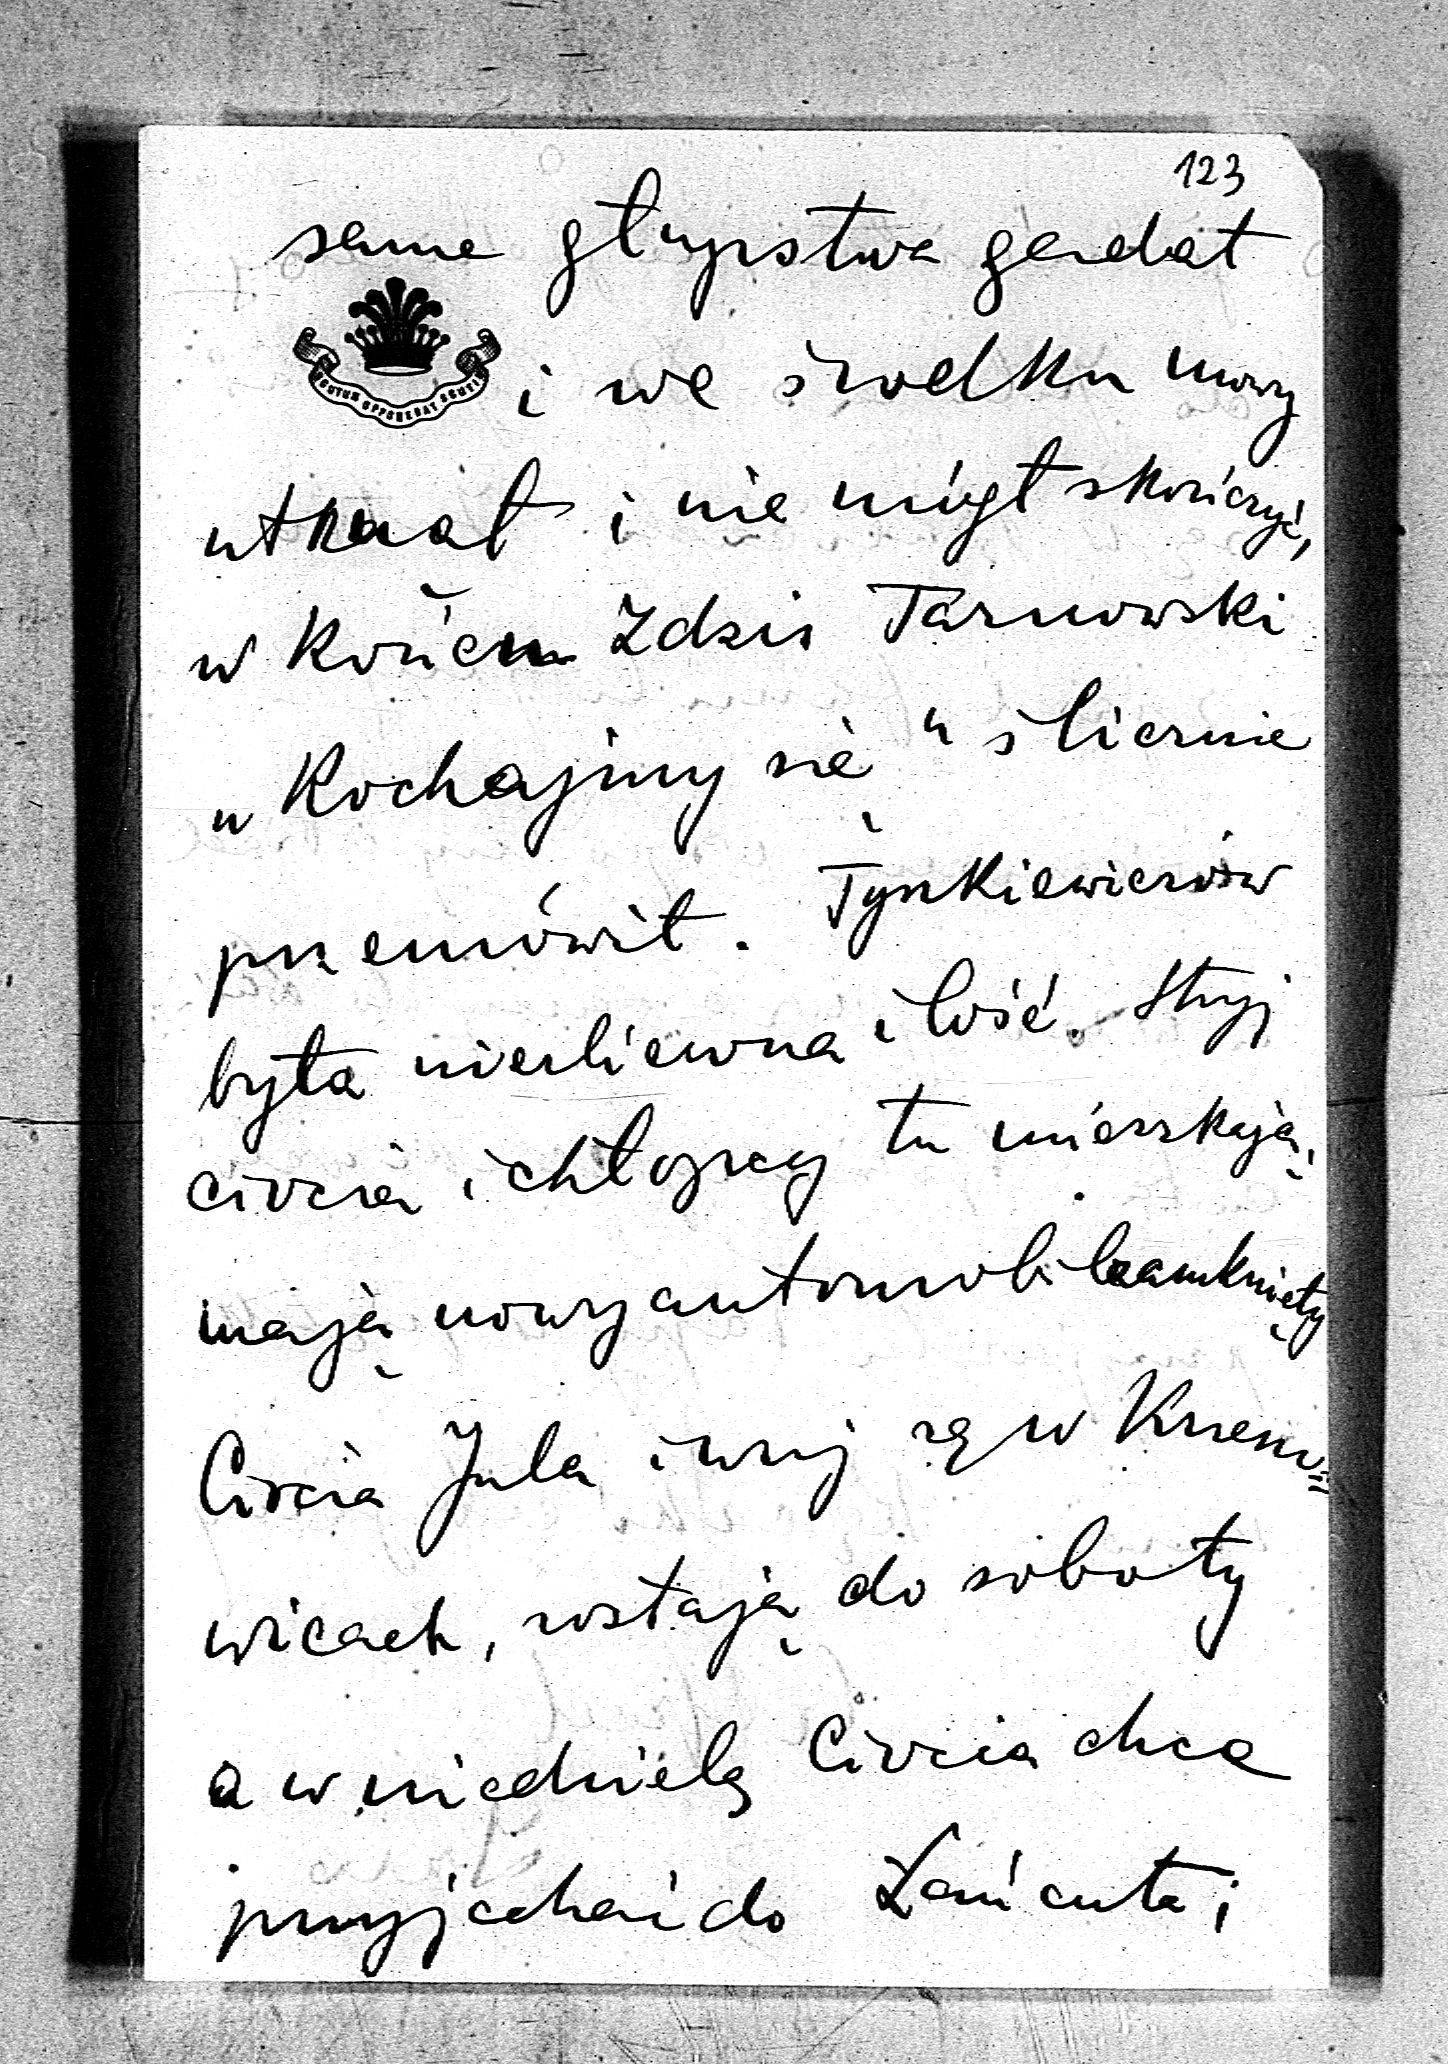 123
same głupstwa gadał
SCUTUM OPPONEBAT SCUTIS
i we środku mowy
utknął i nie mógł skończyć,
w końcu Zdzis Tarnowski
„Kochajmy się" ślicznie
przemówił. Tyszkiewiczów
była niezliczona ilość. Stryj
ciocia i chłopcy tu mieszkają,
mają nowy automobil zamknięty
Ciocia Jula i wuj są w Krzem=
wicach, zostają do soboty
a w niedzielę Ciocia chce
przyjechać do Łańcuta i